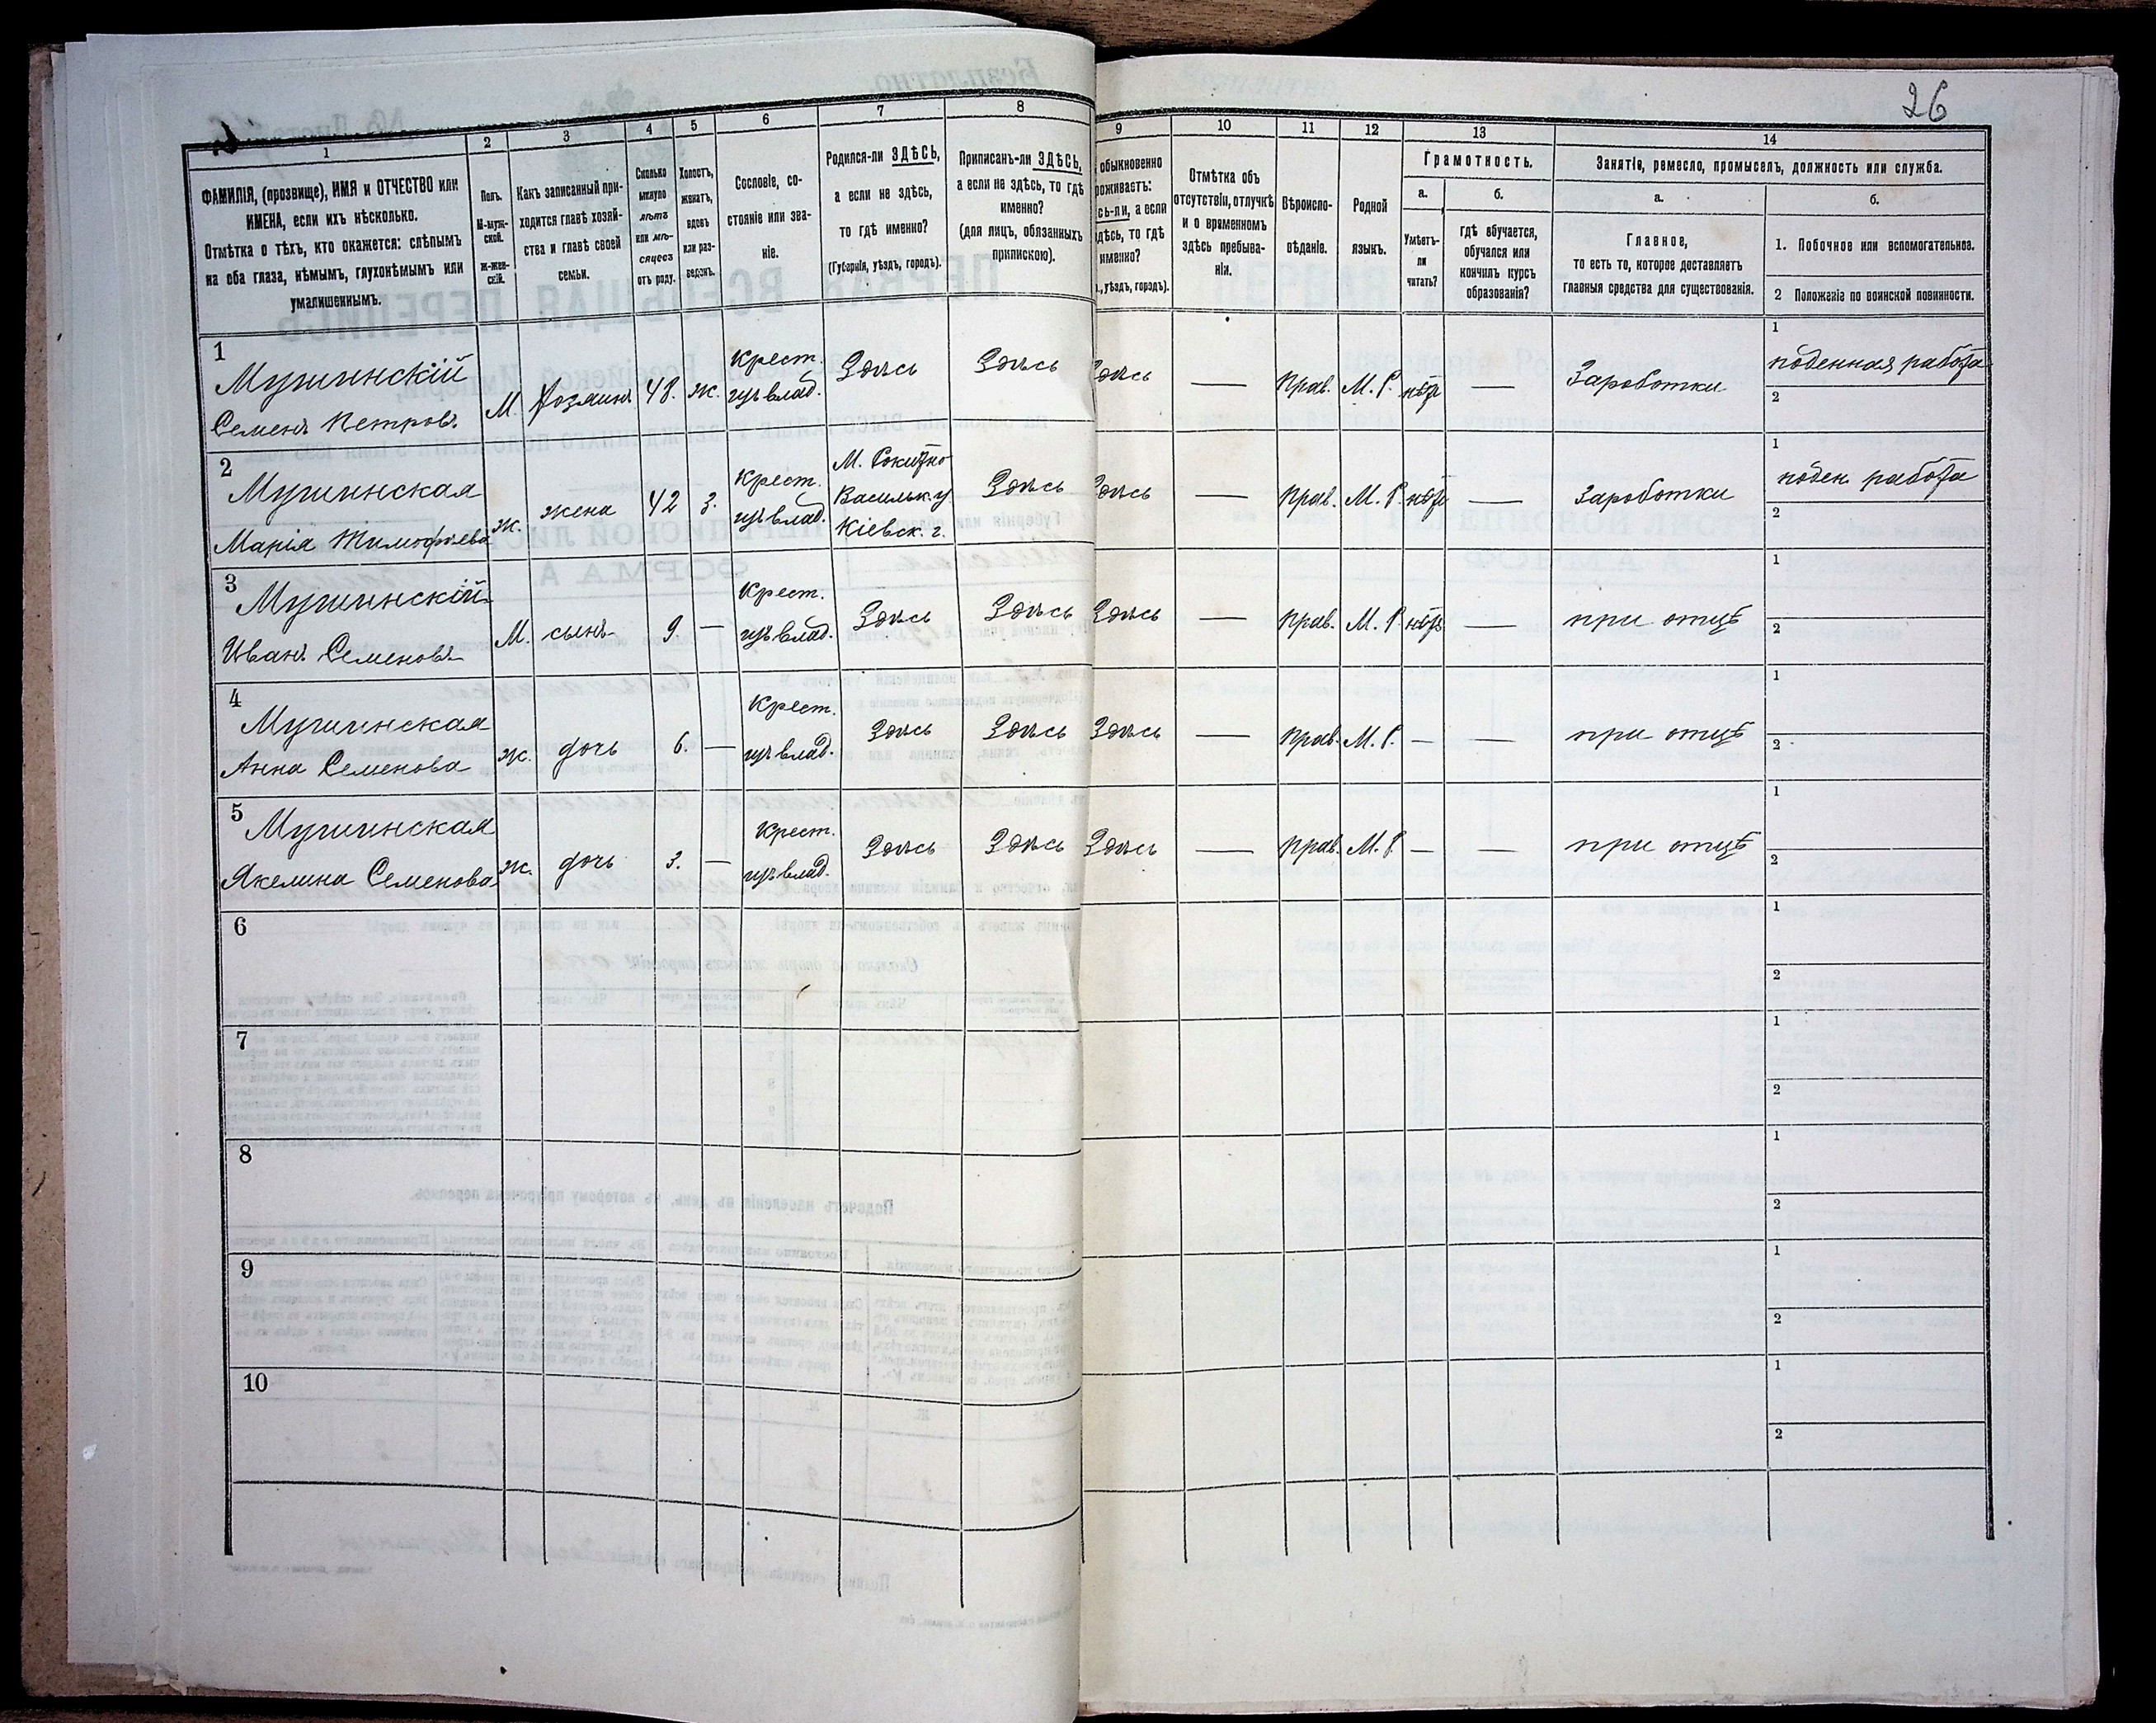 26
1
2
3
4
5
6
7
8
9
10
11
12
13
14
ФАМИЛІЯ, (прозвище), ИМЯ и ОТЧЕСТВО или
ИМЕНА, если ихъ нѣсколько.
Отмѣтка о тѣхъ, кто окажется: слѣпымъ
на оба глаза, нѣмымъ, глухонѣмымъ или
умалишеннымъ.
Полъ.
М-муж-
ской.
Ж-жен-
скій.
Какъ записанный при-
ходится главѣ хозяй-
ства и главѣ своей
семьи.
Сколько
минуло
лѣтъ
или мѣ-
сяцевъ
отъ роду.
Холостъ,
женатъ,
вдовъ
или раз-
веденъ.
Сословіе, со-
стояніе или зва-
ніе.
Родился-ли ЗДѢСЬ,
а если не здѣсь,
то гдѣ именно?
(Губернія, уѣздъ, городъ).
Приписанъ-ли ЗДѢСЬ,
а если не здѣсь, то гдѣ
именно?
(для лицъ, обязанныхъ
припискою).
обыкновенно
роживаетъ:
сь-ли, а если
здѣсь, то гдѣ
именно?
., уѣздъ, городъ).
Отмѣтка объ
отсутствіи, отлучкѣ
и о временномъ
здѣсь пребыва-
ніи.
Вѣроиспо-
вѣданіе.
Родной
языкъ.
Грамотность.
а.
Умѣетъ-
ли
читать?
б.
гдѣ обучается,
обучался или
кончилъ курсъ
образованія?
Занятіе, ремесло, промыселъ, должность или служба.
а.
Главное,
то есть то, которое доставляетъ
главныя средства для существованія.
б.
1. Побочное или вспомогательное.
2 Положеніе по воинской повинности.
1
Семенъ Петровъ
М. Хозяинъ 48. ж. Крест. Здѣсь Здѣсь Здѣсь — Прав. М. Р. — Заработки
1 поденная работа
2
2
Марія Тимофѣева
ж. жена 42 з. Крест.
М. Рокитно
Васильк. у
Кіевск. г.
Здѣсь Здѣсь — Прав. М. Р. — Заработки
1 поден. работа
2
3
Иванъ Семеновъ
М. сынъ 9. — Крест. Здѣсь Здѣсь Здѣсь — Прав. М. Р. — при отцѣ
1
2
4
Анна Семенова
ж. дочь 6. — Крест. Здѣсь Здѣсь Здѣсь — Прав. М. Р. — — при отцѣ
1
2
5
Семенова
ж. дочь 3. — Крест. Здѣсь Здѣсь Здѣсь — Прав. М. Р — — при отцѣ
1
2
6
1
2
7
1
2
8
1
2
9
1
2
10
1
2